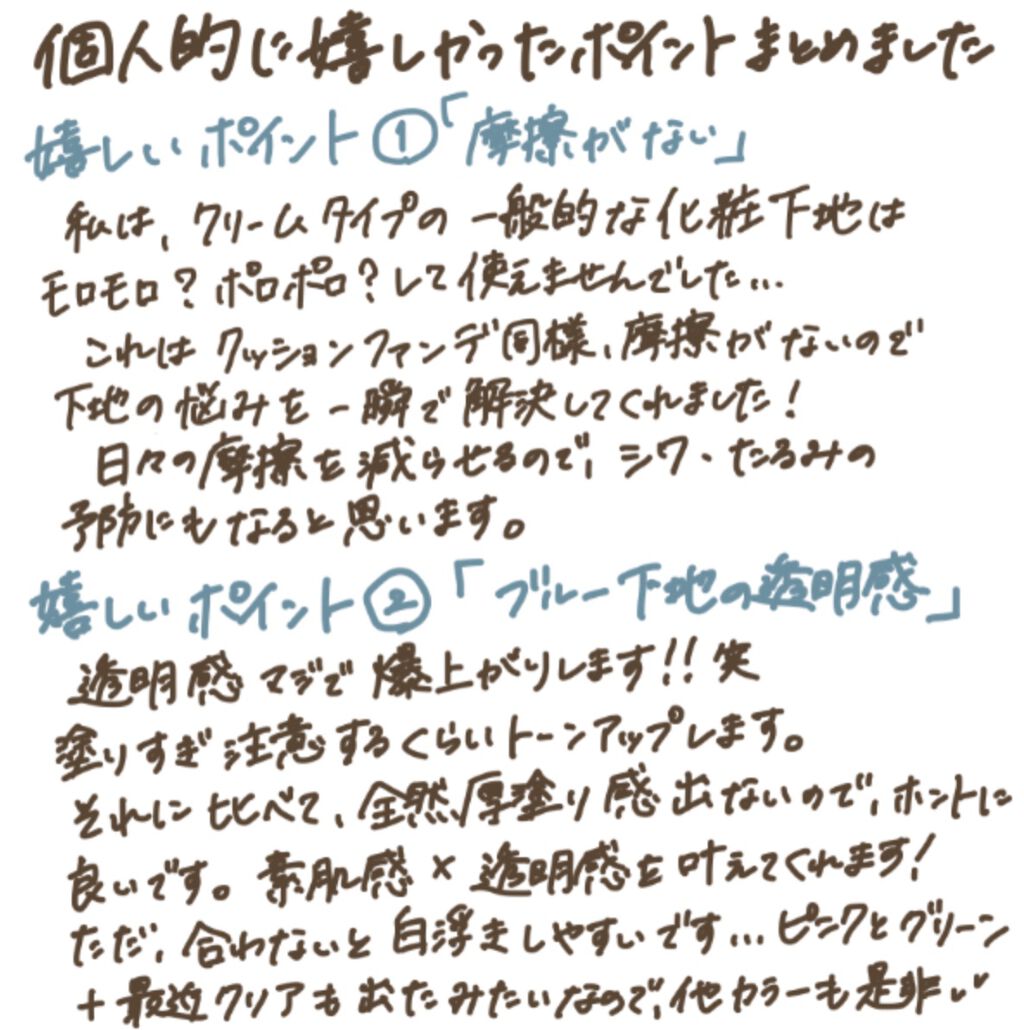 個人的に嬉しかったポイントまとめました
嬉しいポイント①「摩擦がない」
私は、クリームタイプの一般的な化粧下地は
モロモロ？ポロポロ？して使えませんでした…
これはクッションファンデ同様、摩擦がないので
下地の悩みを一瞬で解決してくれました！
日々の摩擦を減らせるので、シワ、たるみの
予防にもなると思います。
嬉しいポイント②「ブルー下地の透明感」
透明感マジで爆上がりします!!笑
塗りすぎ注意するくらいトーンアップします。
それに比べて、全然厚塗り感出ないので、ホントに
良いです。素肌感×透明感を叶えてくれます！
ただ、合わないと白浮きしやすいです…ピンクとグリーン
+最近クリアも出たみたいなので、他カラーも是非♥